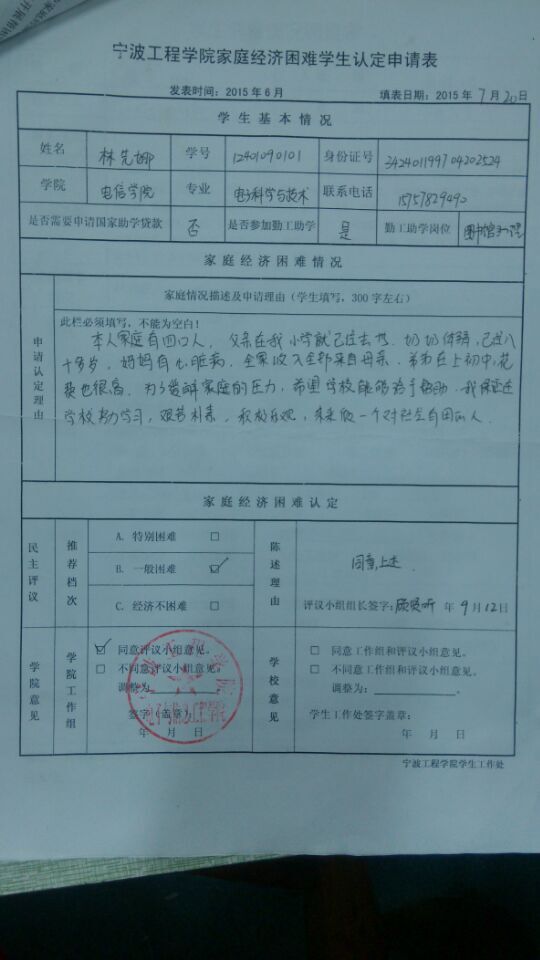 宁波工程学院家庭经济困难学生认定申请表
发表时间：2015年6月 填表日期：2015年7月20日
学生基本情况
姓名 林 娜 学号 12401090101 身份证号 342401199704202524
学院 电信学院 专业 电子科学与技术 联系电话 15757829490
是否需要申请国家助学贷款 否 是否参加勤工助学 是 勤工助学岗位 图书馆
家庭经济困难情况
申请认定理由
家庭情况描述及申请理由（学生填写，300字左右）
此栏必须填写，不能为空白！
本人家庭有四口人，父亲在我小学就已过去世，奶奶体弱，已过八
十多岁，妈妈有心脏病，全家收入全部来自母亲，弟弟在上初中，花
费也很高。为了缓解家庭的压力，希望学校能够给予帮助。我保证在
学校努力学习，艰苦朴素，积极乐观，未来做一个对社会有用的人。
家庭经济困难认定
民主评议 推荐档次
A. 特别困难 □
B. 一般困难 ☑
C. 经济不困难 □
陈述理由
同意上述.
评议小组组长签字： 年9月12日
学院意见 学院工作组
☑ 同意评议小组意见。
□ 不同意评议小组意见。
调整为：
签字（盖章）
年 月 日
学校意见
□ 同意工作组和评议小组意见。
□ 不同意工作组和评议小组意见。
调整为：。
学生工作处签字盖章：
年 月 日
宁波工程学院学生工作处